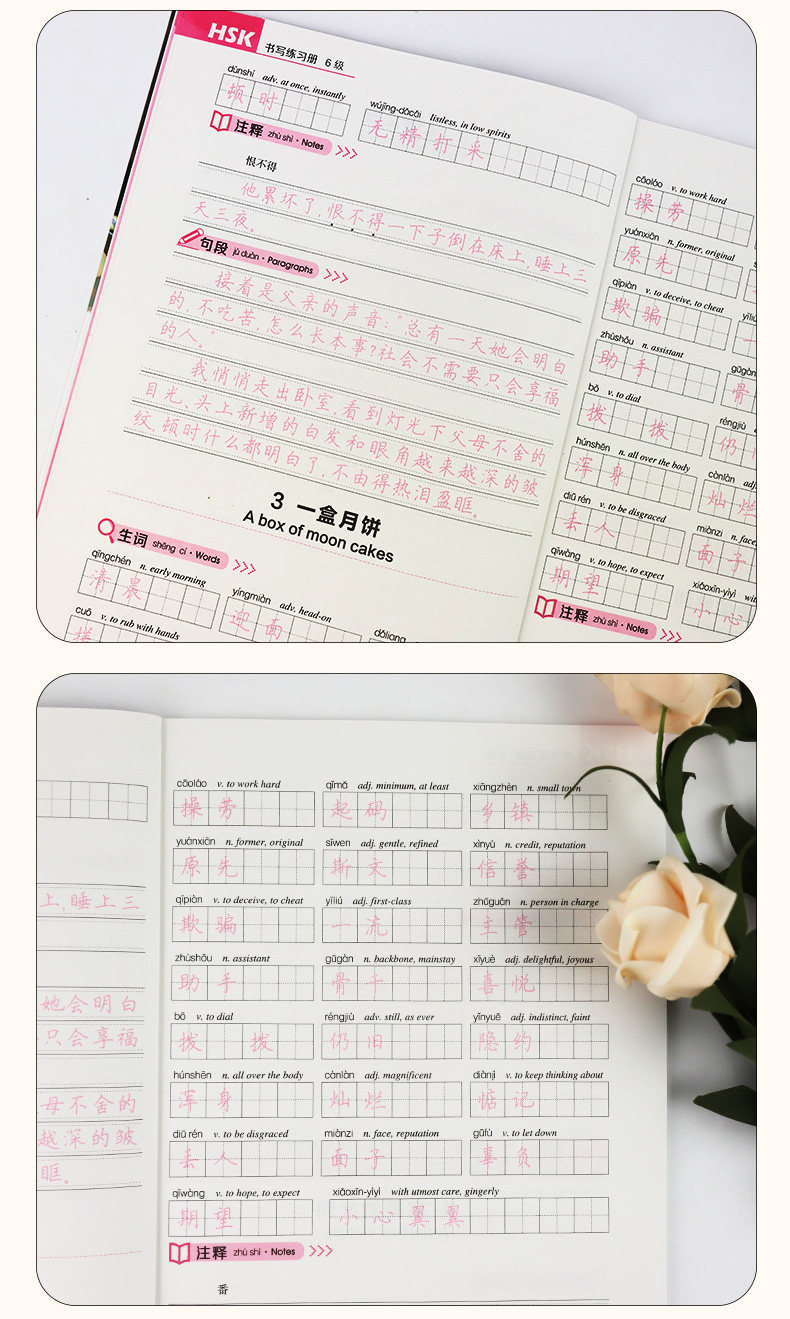 HSK 书写练习册 6 级
dùnshí adv. at once, instantly
顿时
wújīng-dǎcǎi listless, in low spirits
无精打采
注释 zhù shì · Notes
恨不得
他累坏了,恨不得一下子倒在床上,睡上三
天三夜。
句段 jù duàn · Paragraphs
接着是父亲的声音:“总有一天她会明白
的,不吃苦,怎么长本事?社会不需要只会享福
的人。”
我悄悄走出卧室,看到灯光下父母不舍的
目光、头上新增的白发和眼角越来越深的皱
纹,顿时什么都明白了,不由得热泪盈眶。
3 一盒月饼
A box of moon cakes
生词 shēng cí · Words
qīngchén n. early morning
清晨
yíngmiàn adv. head-on
迎面
cuō v. to rub with hands
搓
cāoláo v. to work hard
操劳
yuánxiān n. former, original
原先
qīpiàn v. to deceive, to cheat
欺骗
yīliú
zhùshǒu n. assistant
助手
gǔgàn
骨
bō v. to dial
拨 拨
réngjiù
仍旧
húnshēn n. all over the body
浑身
cànlàn adj.
灿烂
diū rén v. to be disgraced
丢人
miànzi n. face,
面子
qīwàng v. to hope, to expect
期望
xiǎoxīn-yìyì
小心
注释 zhù shì · Notes
上,睡上三
她会明白
只会享福
母不舍的
越深的皱
眶。
cāoláo v. to work hard
操劳
qǐmǎ adj. minimum, at least
起码
xiāngzhèn n. small town
乡镇
yuánxiān n. former, original
原先
sīwen adj. gentle, refined
斯文
xìnyù n. credit, reputation
信誉
qīpiàn v. to deceive, to cheat
欺骗
yīliú adj. first-class
一流
zhǔguǎn n. person in charge
主管
zhùshǒu n. assistant
助手
gǔgàn n. backbone, mainstay
骨干
xǐyuè adj. delightful, joyous
喜悦
bō v. to dial
拨 拨
réngjiù adv. still, as ever
仍旧
yǐnyuē adj. indistinct, faint
隐约
húnshēn n. all over the body
浑身
cànlàn adj. magnificent
灿烂
diànjì v. to keep thinking about
惦记
diū rén v. to be disgraced
丢人
miànzi n. face, reputation
面子
gūfù v. to let down
辜负
qīwàng v. to hope, to expect
期望
xiǎoxīn-yìyì with utmost care, gingerly
小心翼翼
注释 zhù shì · Notes
番